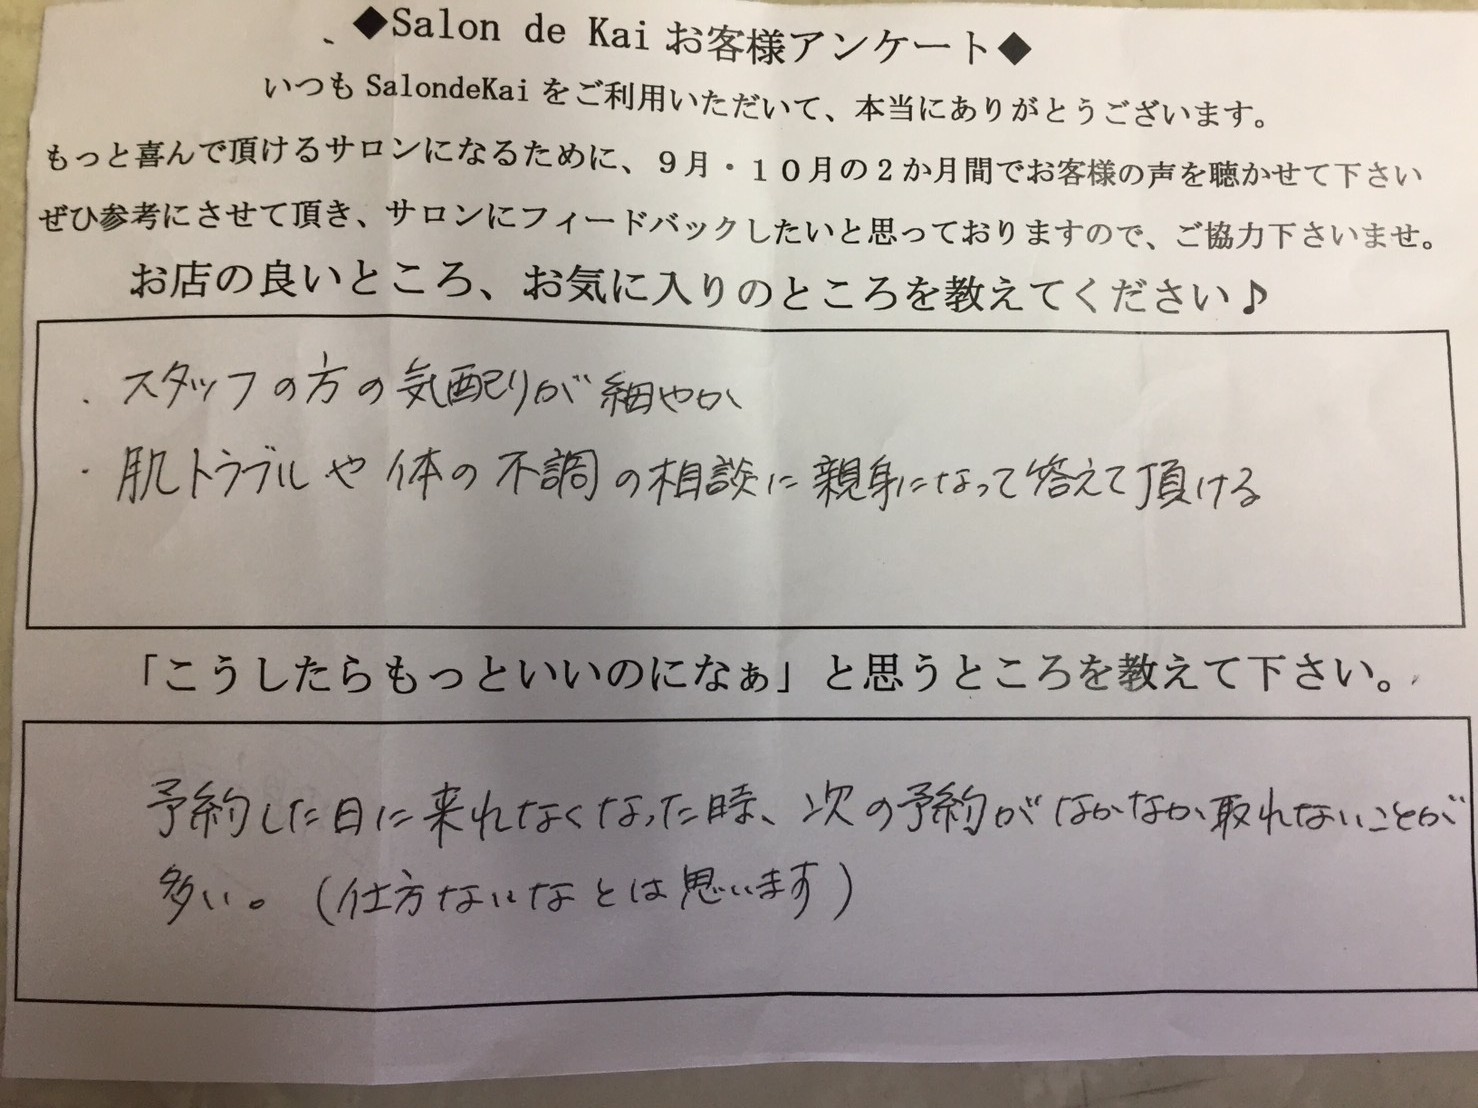 ◆Salon de Kai お客様アンケート◆
いつも SalondeKai をご利用いただいて、本当にありがとうございます。
もっと喜んで頂けるサロンになるために、9月・10月の2か月間でお客様の声を聴かせて下さい
ぜひ参考にさせて頂き、サロンにフィードバックしたいと思っておりますので、ご協力下さいませ。
お店の良いところ、お気に入りのところを教えてください♪
・スタッフの方の気配りが細やか
・肌トラブルや体の不調の相談に親身になって答えて頂ける
「こうしたらもっといいのになぁ」と思うところを教えて下さい。
予約した日に来れなくなった時、次の予約がなかなか取れないことが
多い。(仕方ないなとは思います)